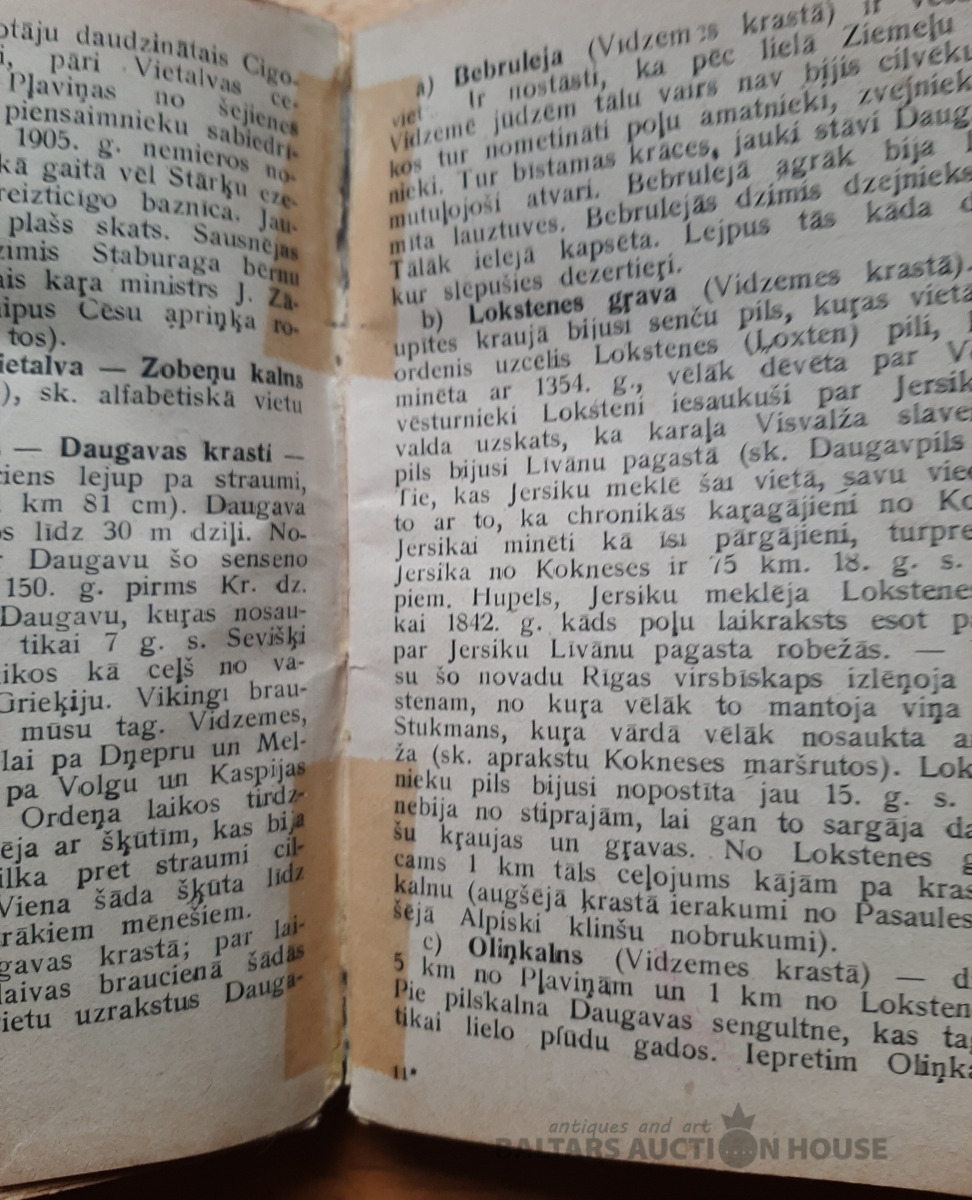 daudzinātais Cigo-
pāri Vietalvas ce-
Pļaviņas no šejienes
piensaimnieku sabiedrī-
1905. g. nemieros no-
gaitā vēl Stārķu eze-
baznīca. Jau-
plašs skats. Sausnējas
Staburaga bērnu
kaŗa ministrs J. Zā-
Cēsu apriņķa ro-
tos).
— Zobeņu kalns
), sk. alfabētiskā vietu
— Daugavas krasti —
lejup pa straumi,
km 81 cm). Daugava
līdz 30 m dziļi. No-
Daugavu šo senseno
150. g. pirms Kr. dz.
Daugavu, kuŗas nosau-
tikai 7 g. s. Sevišķi
kā ceļš no va-
Grieķiju. Vikingi brau-
mūsu tag. Vidzemes,
lai pa Dņepru un Mel-
pa Volgu un Kaspijas
Ordeņa laikos tirdz-
ar šķūtīm, kas bija
pret straumi cil-
Viena šāda šķūta līdz
mēnešiem.
krastā; par lai-
braucienā šādās
uzrakstus Dauga-
a) Bebruleja (Vidzemes krastā) ir
viet Ir nostāsti, ka pēc lielā Ziemeļu
Vidzemē jūdzēm tālu vairs nav bijis cilvēku
kos tur nometināti poļu amatnieki, zvejniek
nieki. Tur bīstamas krāces, jauki stāvi
mutuļojoši atvari. Bebrulejā agrāk bija
mīta lauztuves. Bebrulejās dzimis dzejnieks
Tālāk ielejā kapsēta. Lejpus tās kāda
kur slēpušies dezertieŗi.
b) Lokstenes grava (Vidzemes krastā).
upītes kraujā bijusi senču pils, kuŗas vietā
ordenis uzcēlis Lokstenes (Ļoxten) pili,
minēta ar 1354. g., vēlāk dēvēta par
vēsturnieki Loksteni iesaukuši par
valda uzskats, ka karaļa Visvalža
pils bijusi Līvānu pagastā (sk. Daugavpils
Tie, kas Jersiku meklē šai vietā, savu
to ar to, ka chronikās kaŗagājieni no
Jersikai minēti kā īsi pārgājieni,
Jersika no Kokneses ir 75 km. 18. g. s.
piem. Hupels, Jersiku meklēja
kai 1842. g. kāds poļu laikraksts esot
par Jersiku Līvānu pagasta robežās. —
su šo novadu Rīgas virsbīskaps izlēņoja
stenam, no kuŗa vēlāk to mantoja viņa
Stukmans, kuŗa vārdā vēlāk nosaukta
ža (sk. aprakstu Kokneses maršrutos).
nieku pils bijusi nopostīta jau 15. g. s.
nebija no stiprajām, lai gan to sargāja
šu kŗaujas un gŗavas. No Lokstenes
cams 1 km tāls ceļojums kājām pa
kalnu (augšējā krastā ierakumi no Pasaules
šējā Alpiski klinšu nobrukumi).
c) Oliņkalns (Vidzemes krastā) —
5 km no Pļaviņām un 1 km no
Pie pilskalna Daugavas sengultne, kas
tikai lielo plūdu gados. Iepretim
11*
antiques and art
BALTARS AUCTION HOUSE